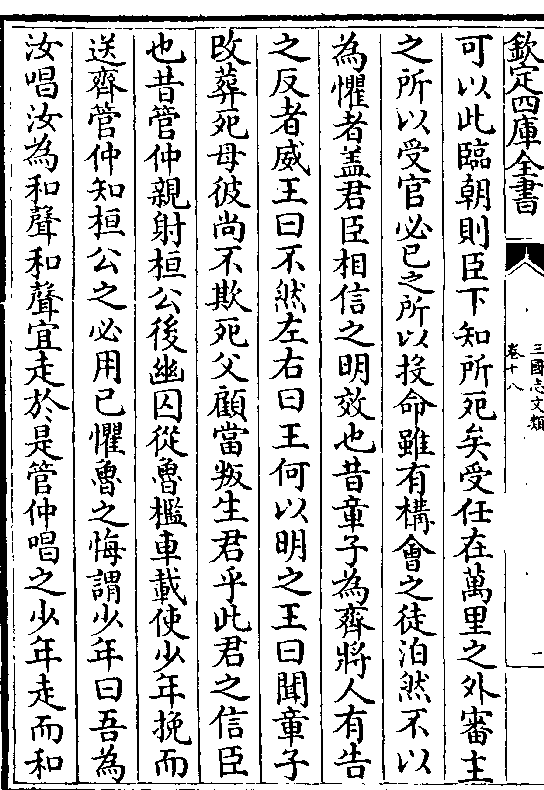 欽定四庫全書
三國志文類
卷十八
一
可以此臨朝則臣下知所死矣受任在萬里之外審主
之所以受官必已之所以投命雖有構會之徒泊然不以
為懼者盖君臣相信之明效也昔童子為齊將人有告
之反者威王曰不然左右曰王何以明之王曰聞童子
改葬死母彼尚不欺死父顧當叛生君乎此君之信臣
也昔管仲親射桓公後幽囚從魯檻車載使少年挽而
送齊管仲知桓公之必用已懼魯之悔謂少年曰吾為
汝唱汝為和聲和聲宜走於是管仲唱之少年走而和